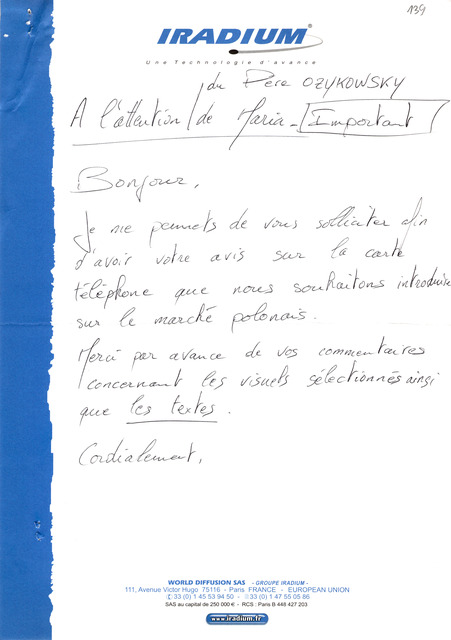 139
IRADIUM®
Une Technologie d'avance
du Père OZYKOWSKY
A l'attention / de Maria - Important
Bonjour,
Je me permets de vous solliciter afin
d'avoir votre avis sur la carte
téléphone que nous souhaitons introduire
sur le marché polonais.
Merci par avance de vos commentaires
concernant les visuels sélectionnés ainsi
que les textes.
Cordialement,
WORLD DIFFUSION SAS - GROUPE IRADIUM -
111, Avenue Victor Hugo 75116 - Paris FRANCE - EUROPEAN UNION
✆ 33 (0) 1 45 53 94 50 - 33 (0) 1 47 55 05 86
SAS au capital de 250 000 € - RCS : Paris B 448 427 203
www.iradium.fr